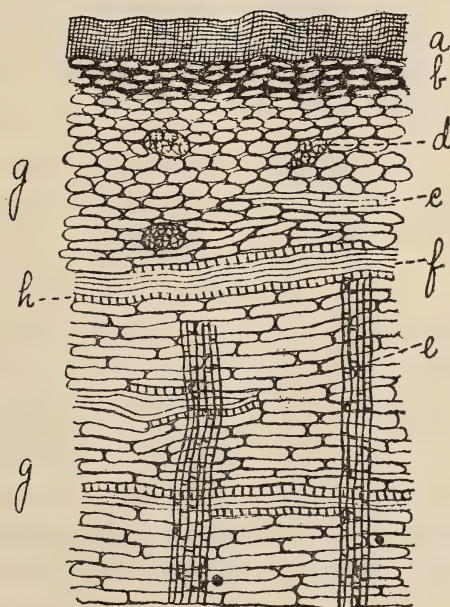 a
b
d
g
c
f
h
e
g